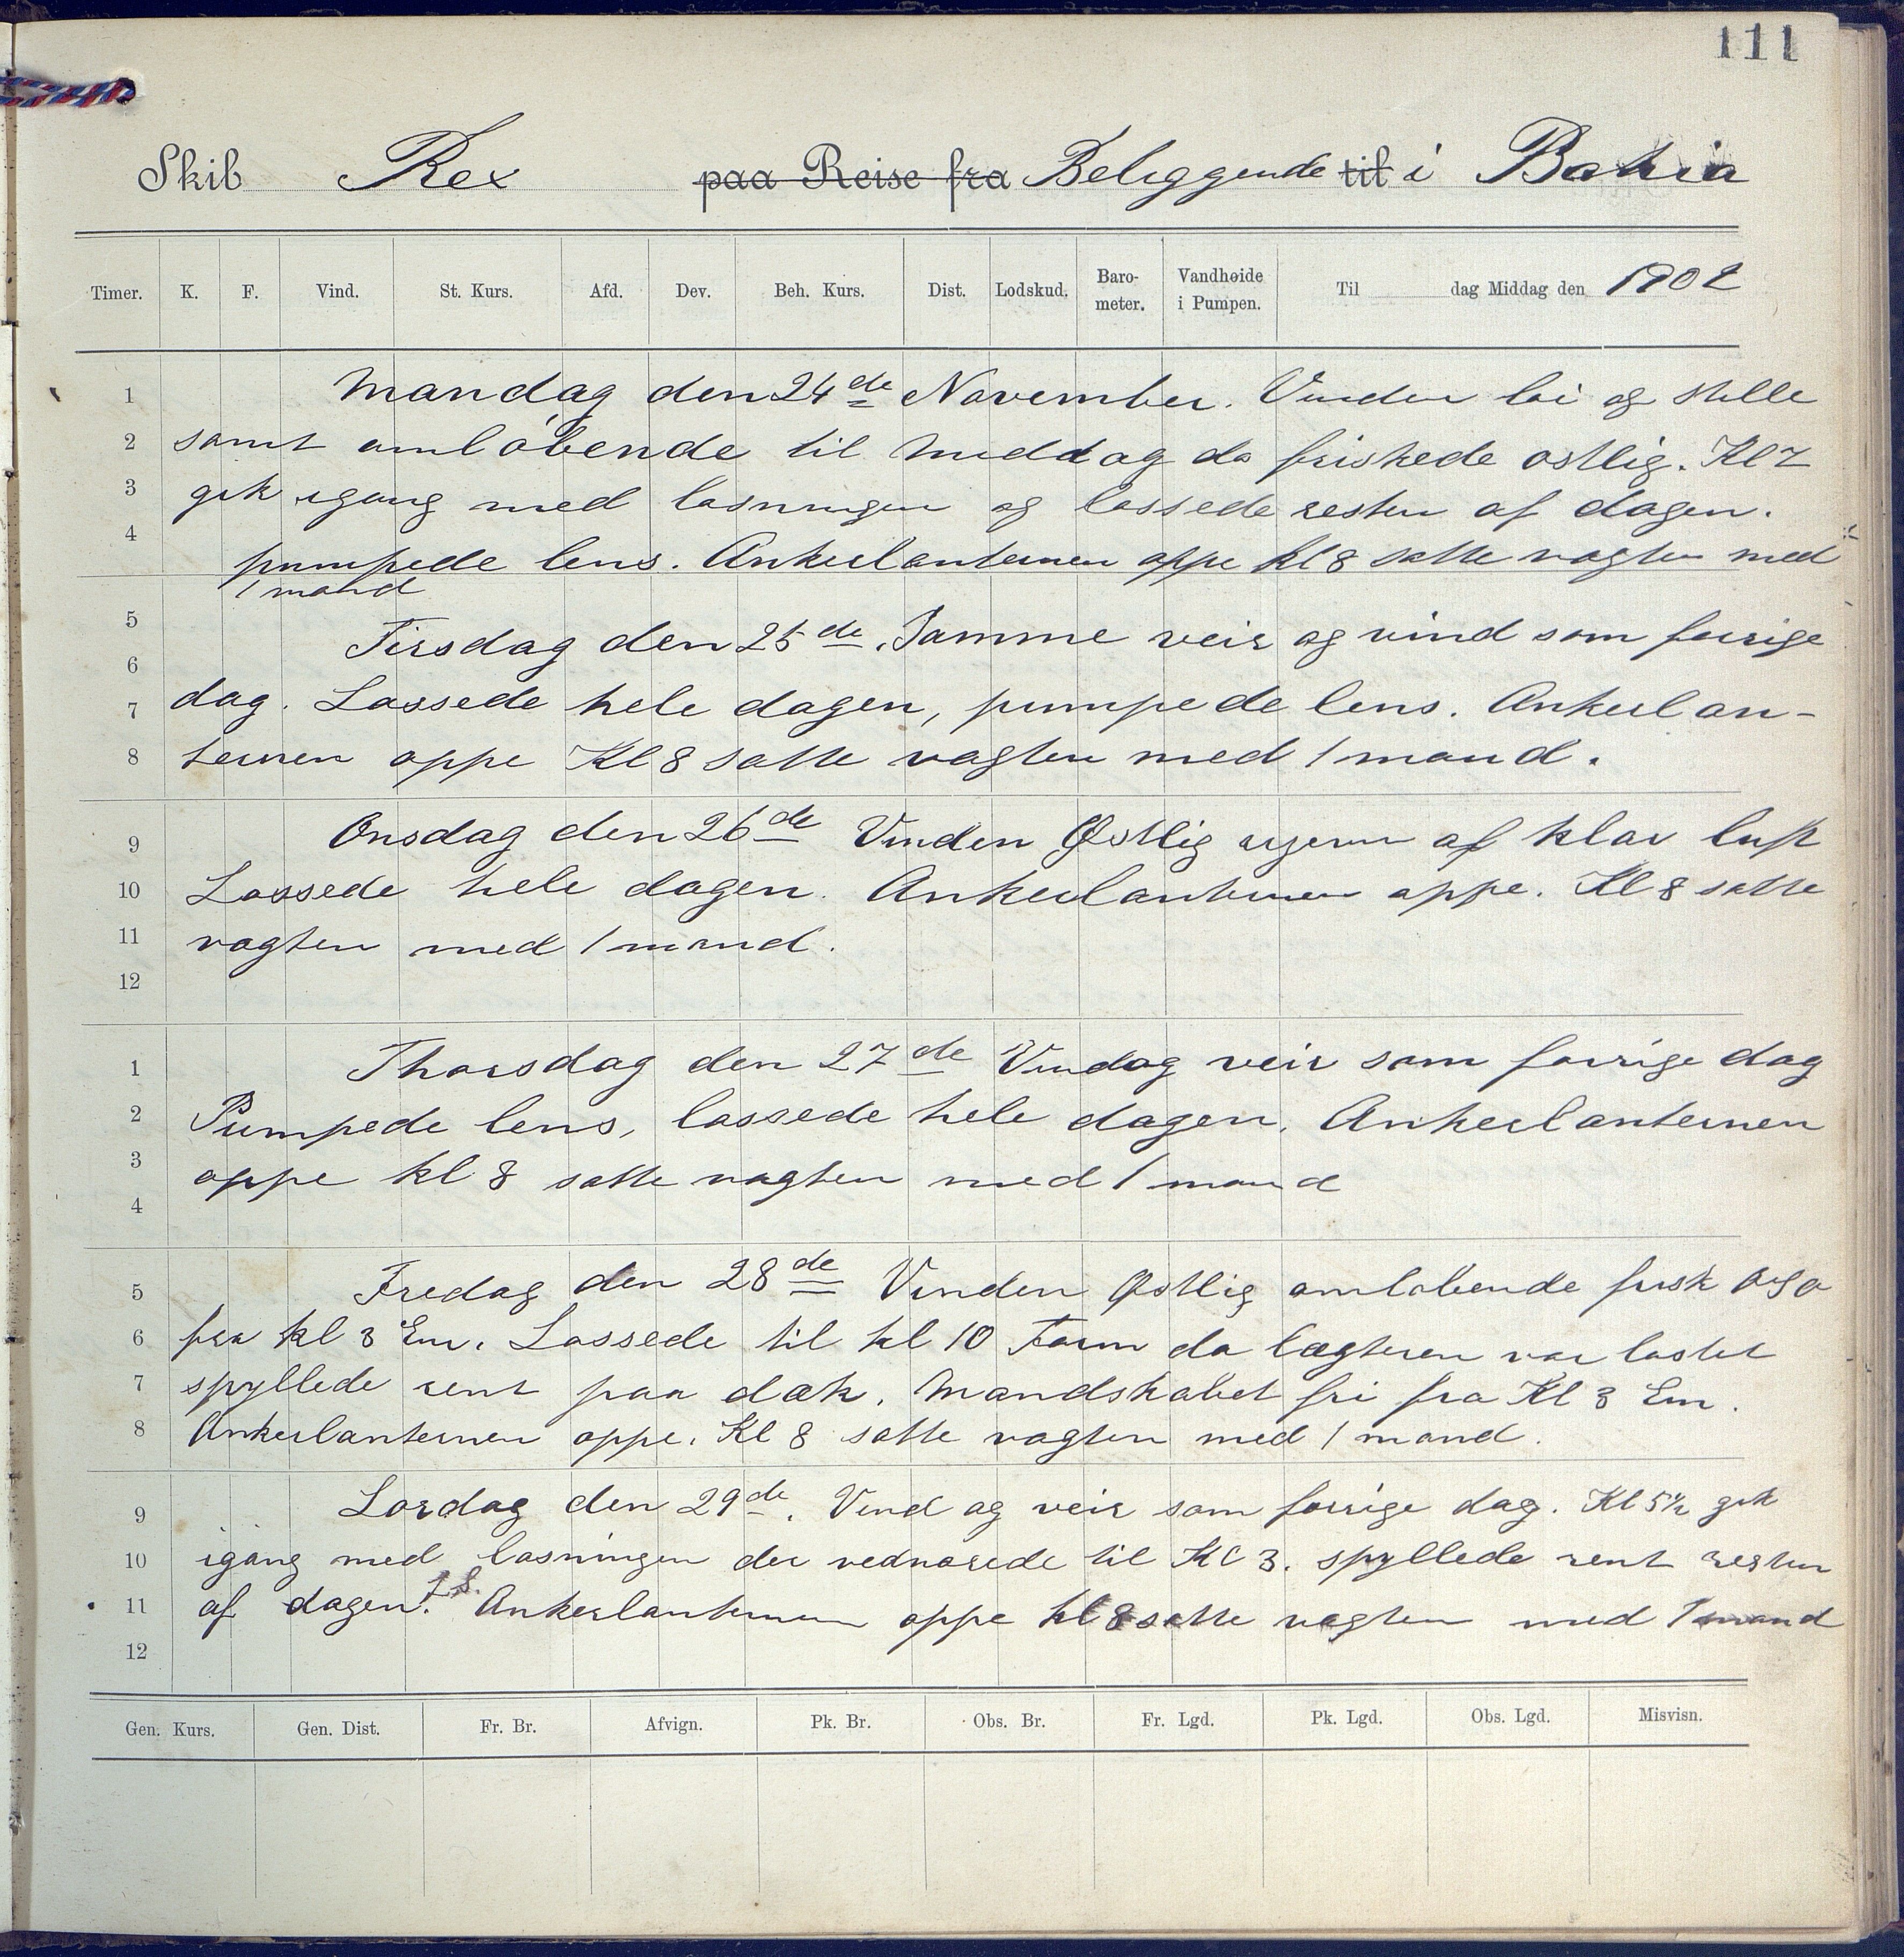 111
Skib Rex paa Reise fra Beliggende til i Bahia
Timer. K. F. Vind. St. Kurs. Afd. Dev. Beh. Kurs. Dist. Lodskud. Baro-meter. Vandhøide i Pumpen. Til dag Middag den 1902
1 Mandag den 24de November. Vinden løi og stille
2 samt omløbende til Middag da friskede ostlig. Kl 7
3 gik igang med losningen og lossede resten af dagen.
4 pumpede lens. Ankerlanternen oppe Kl 8 satte vagten med
1 mand
5 Tirsdag den 25de. Samme veir og vind som forrige
6
7 dag. Lossede hele dagen, pumpede lens. Ankerlan-
8 ternen oppe Kl 8 satte vagten med 1 mand.
9 Onsdag den 26de Vinden Østlig af klar luft
10 Lossede hele dagen. Ankerlanternen oppe. Kl 8 satte
11 vagten med 1 mand.
12
1 Thorsdag den 27de Vind og veir som forrige dag
2 Pumpede lens, lossede hele dagen. Ankerlanternen
3 oppe kl 8 satte vagten med 1 mand
4
5 Fredag den 28de Vinden Østlig omløbende frisk
6 fra kl 3 Em. Lossede til kl 10 Form da lægteren var lastet
7 spyllede rent paa dæk. Mandskabet fri fra Kl 3 Em.
8 Ankerlanternen oppe. Kl 8 satte vagten med 1 mand.
9 Lordag den 29de. Vind og veir som forrige dag. Kl 5½ gik
10 igang med losningen der vedvarede til Kl 3. spyllede rent resten
11 af dagen. Ankerlanternen oppe kl 8 satte vagten med 1 mand
12
Gen. Kurs. Gen. Dist. Fr. Br. Afvign. Pk. Br. Obs. Br. Fr. Lgd. Pk. Lgd. Obs. Lgd. Misvisn.